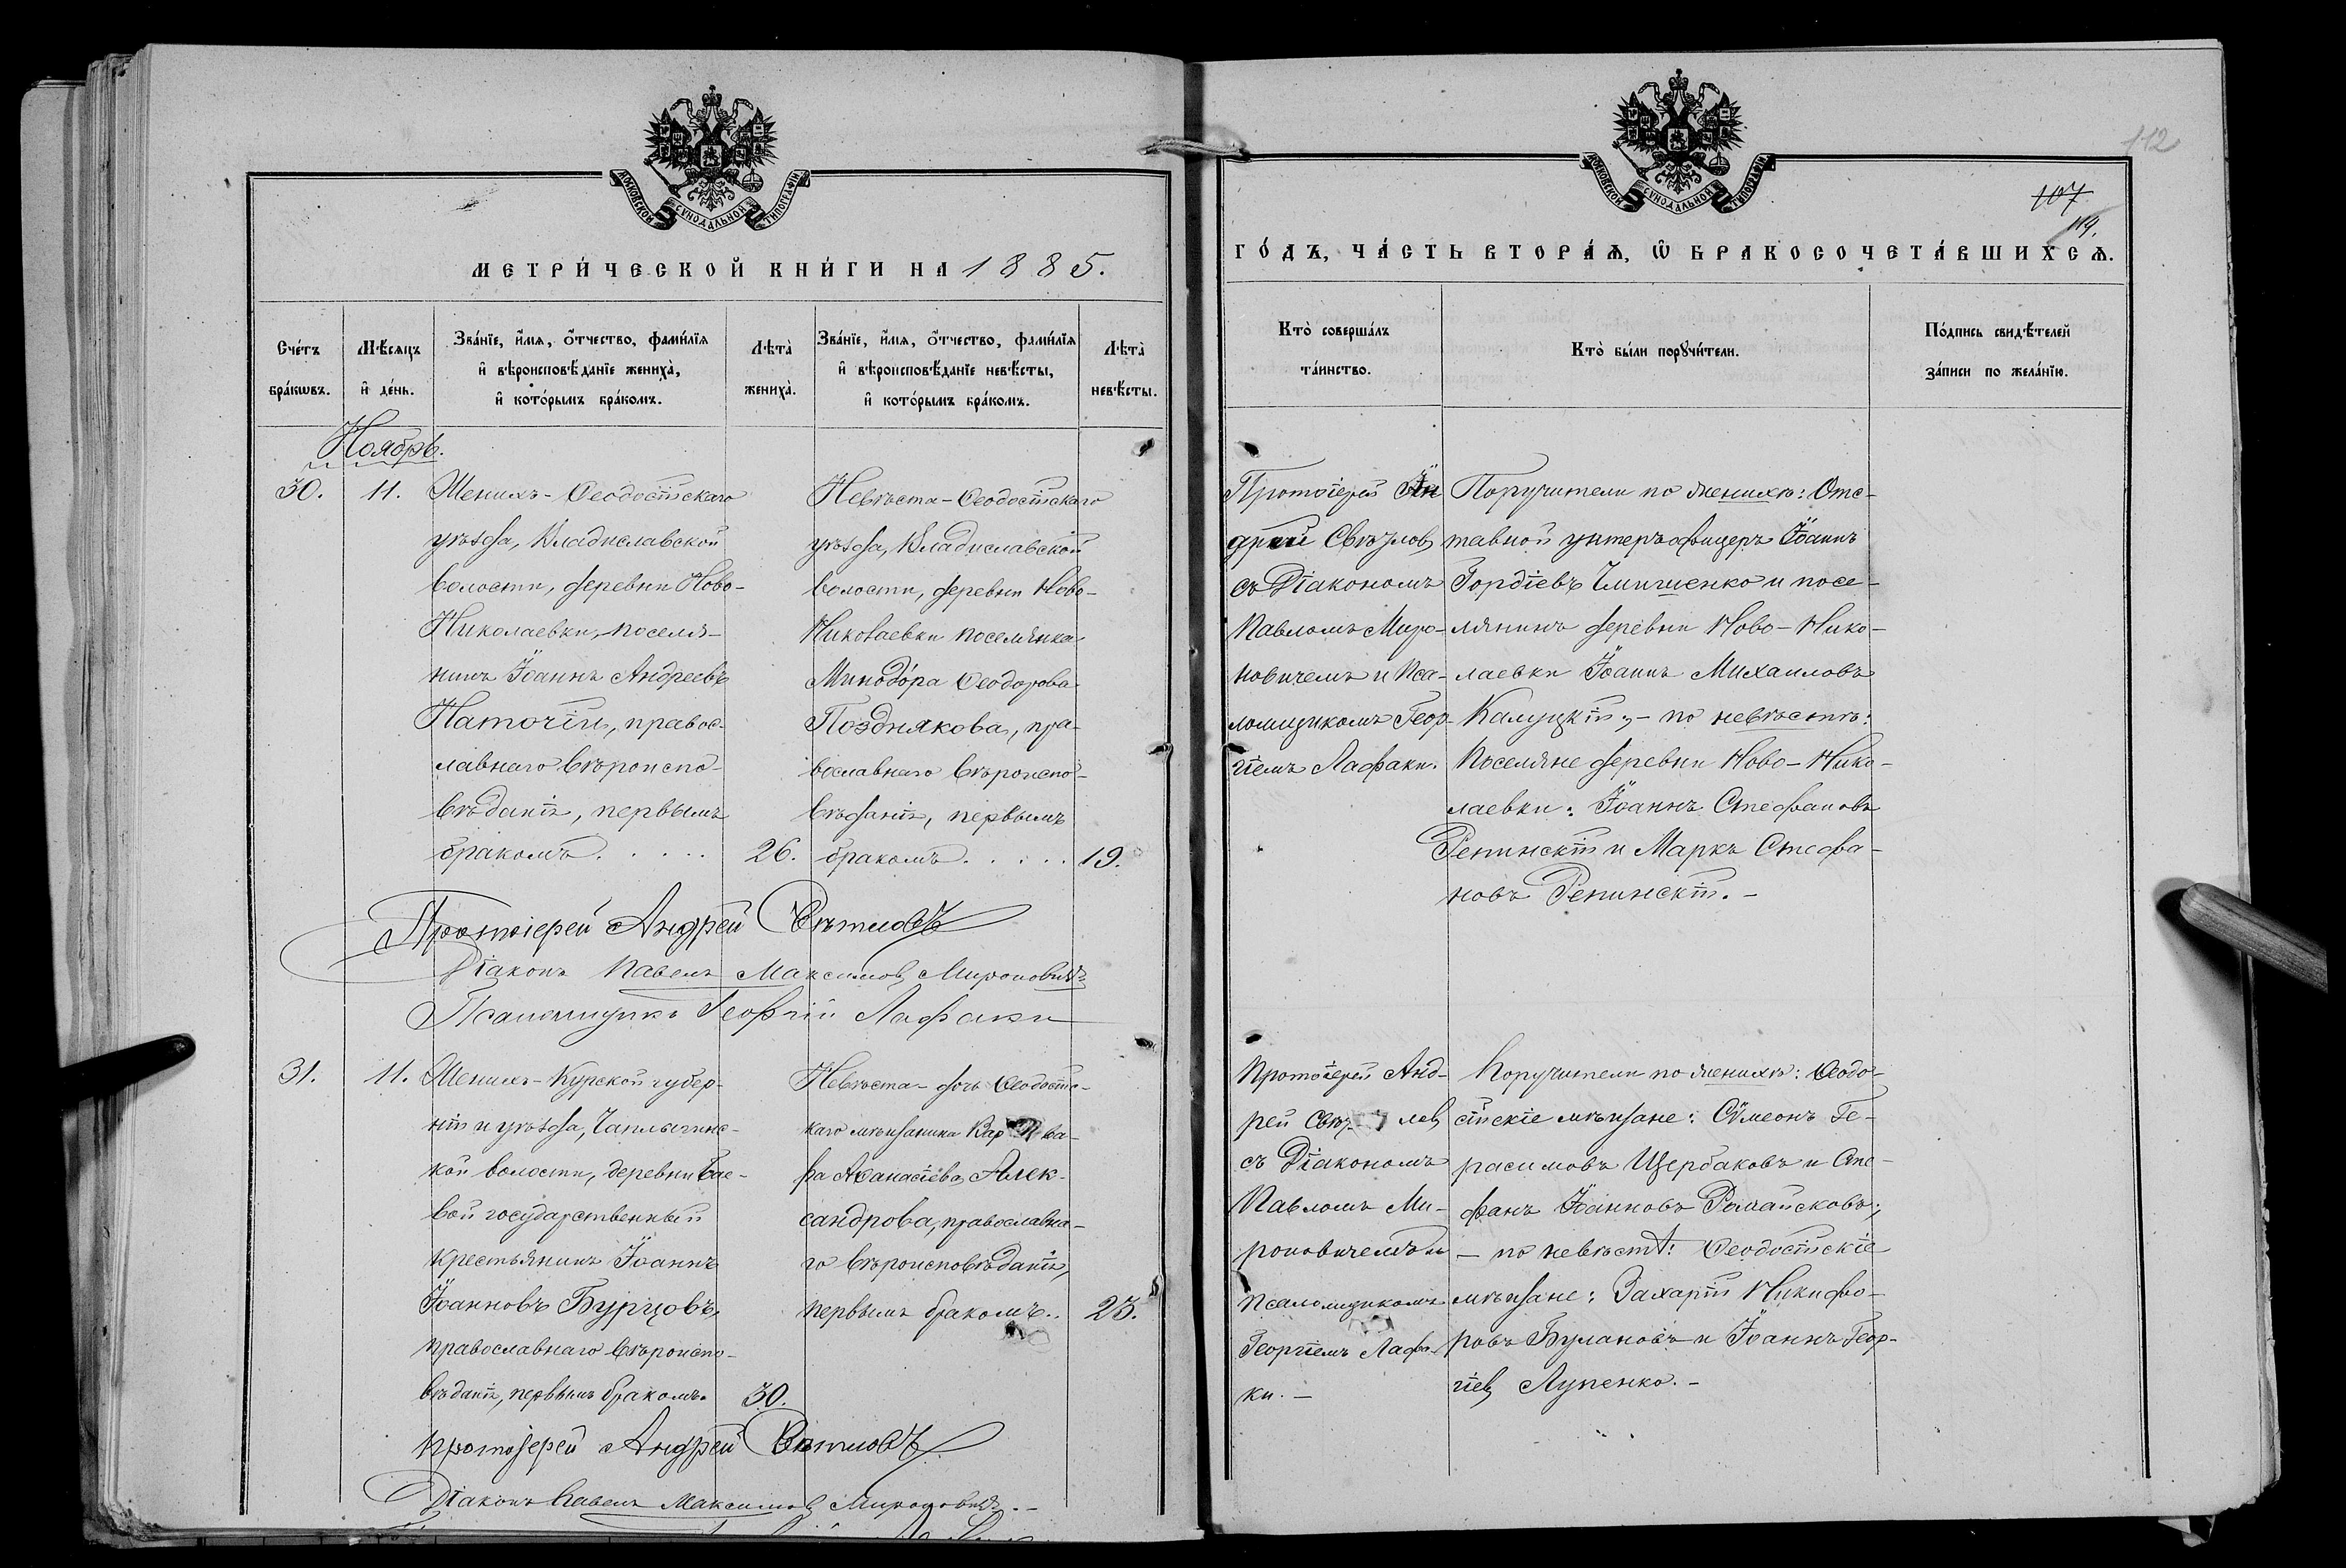 МОСКОВСКОЙ СУНОДАЛЬНОЙ ТИПОГРАФІИ
МЕТРИ́ЧЕСКОЙ КНИ́ГИ НА 1885.
Сче́тъ бра́кѡвъ.
Мѣ́сяцъ и҆ де́нь.
Зва́нїе, и҆́мя, ѻ҆́тчество, фами́лїя
и҆ вѣроисповѣ́данїе жениха̀,
и҆ кото́рымъ бра́комъ.
Лѣта̀ жениха̀.
Зва́нїе, и҆́мя, ѻ҆́тчество, фами́лїя
и҆ вѣроисповѣ́данїе невѣ́сты,
и҆ кото́рымъ бра́комъ.
Лѣта̀ невѣ́сты.
Ноябрь.
30.
11.
Женихъ - Ѳеодосійскаго
уѣзда, Владиславской
волости, деревни Ново-
Николаевки, поселя-
нинъ Іоаннъ Андреевъ
Наточій, правос-
лавнаго вѣроиспо-
вѣданія, первымъ
бракомъ. . . . . .
26.
Невѣста - Ѳеодосійскаго
уѣзда, Владиславской
волости, деревни Ново-
Николаевки поселянка
Минодо́ра Ѳеодорова
Позднякова, пра-
вославнаго вѣроиспо-
вѣданія, первымъ
бракомъ. . . . .
19.
Протоіерей Андрей Свѣтловъ
Діаконъ Павелъ Максимовъ Мироновичъ
Псаломщикъ Георгій Лафаки
31.
11.
Женихъ - Курской губер-
ніи и уѣзда, Чаплыгинс-
кой волости, деревни Бае-
вой государственный
крестьянинъ Іоаннъ
Іоанновъ Бурцовъ,
православнаго вѣроиспо-
вѣданія, первымъ бракомъ.
30.
Невѣста - дочь Ѳеодосійс-
каго мѣщанина Вар ва-
ра Аѳанасіева Алек-
сандрова, православна-
го вѣроисповѣданія,
первымъ бракомъ..
23.
Протоіерей Андрей Свѣтловъ
Діаконъ Павелъ Максимовъ Мироновичъ. -
МОСКОВСКОЙ СУНОДАЛЬНОЙ ТИПОГРАФІИ
112
107
119.
ГО́ДЪ, ЧА́СТЬ ВТОРА́Ѧ, Ѡ҆ БРАКОСОЧЕТА́ВШИХСѦ.
Кто̀ соверша́лъ та́инство.
Кто̀ бы́ли порꙋчи́тели.
По́дпись свидѣ́телей
за́писи по жела́нїю.
Протоіерей Ан
дрей Свѣтловъ
съ Діакономъ
Павломъ Миро-
новичемъ и Пса-
ломщикомъ Геор-
гіемъ Лафаки.
Поручители по женихѣ: Отс-
тавной унтеръ офицеръ Іоаннъ
Гордіевъ Чмишенко и посе-
лянинъ деревни Ново-Нико-
лаевки Іоаннъ Михаиловъ
Калуцкій, - по невѣстѣ:
Поселяне деревни Ново-Нико-
лаевки: Іоаннъ Стефановъ
Репинскій и Маркъ Стефа-
новъ Репинскій. -
Протоіерей Анд-
рей Свѣт ловъ
съ Діакономъ
Павломъ Ми-
роновичемъ и
Псаломщикомъ
Георгіемъ Лафа-
ки. -
Поручители по женихѣ: Ѳеодо-
сійскіе мѣщане: Сѵмеонъ Ге-
расимовъ Щербаковъ и Сте-
фанъ Іоанновъ Романсковъ;
- по невѣстѣ: Ѳеодосійскіе
мѣщане: Захарій Никифо-
ровъ Булановъ и Іоаннъ Геор-
гіевъ Лупенко. -